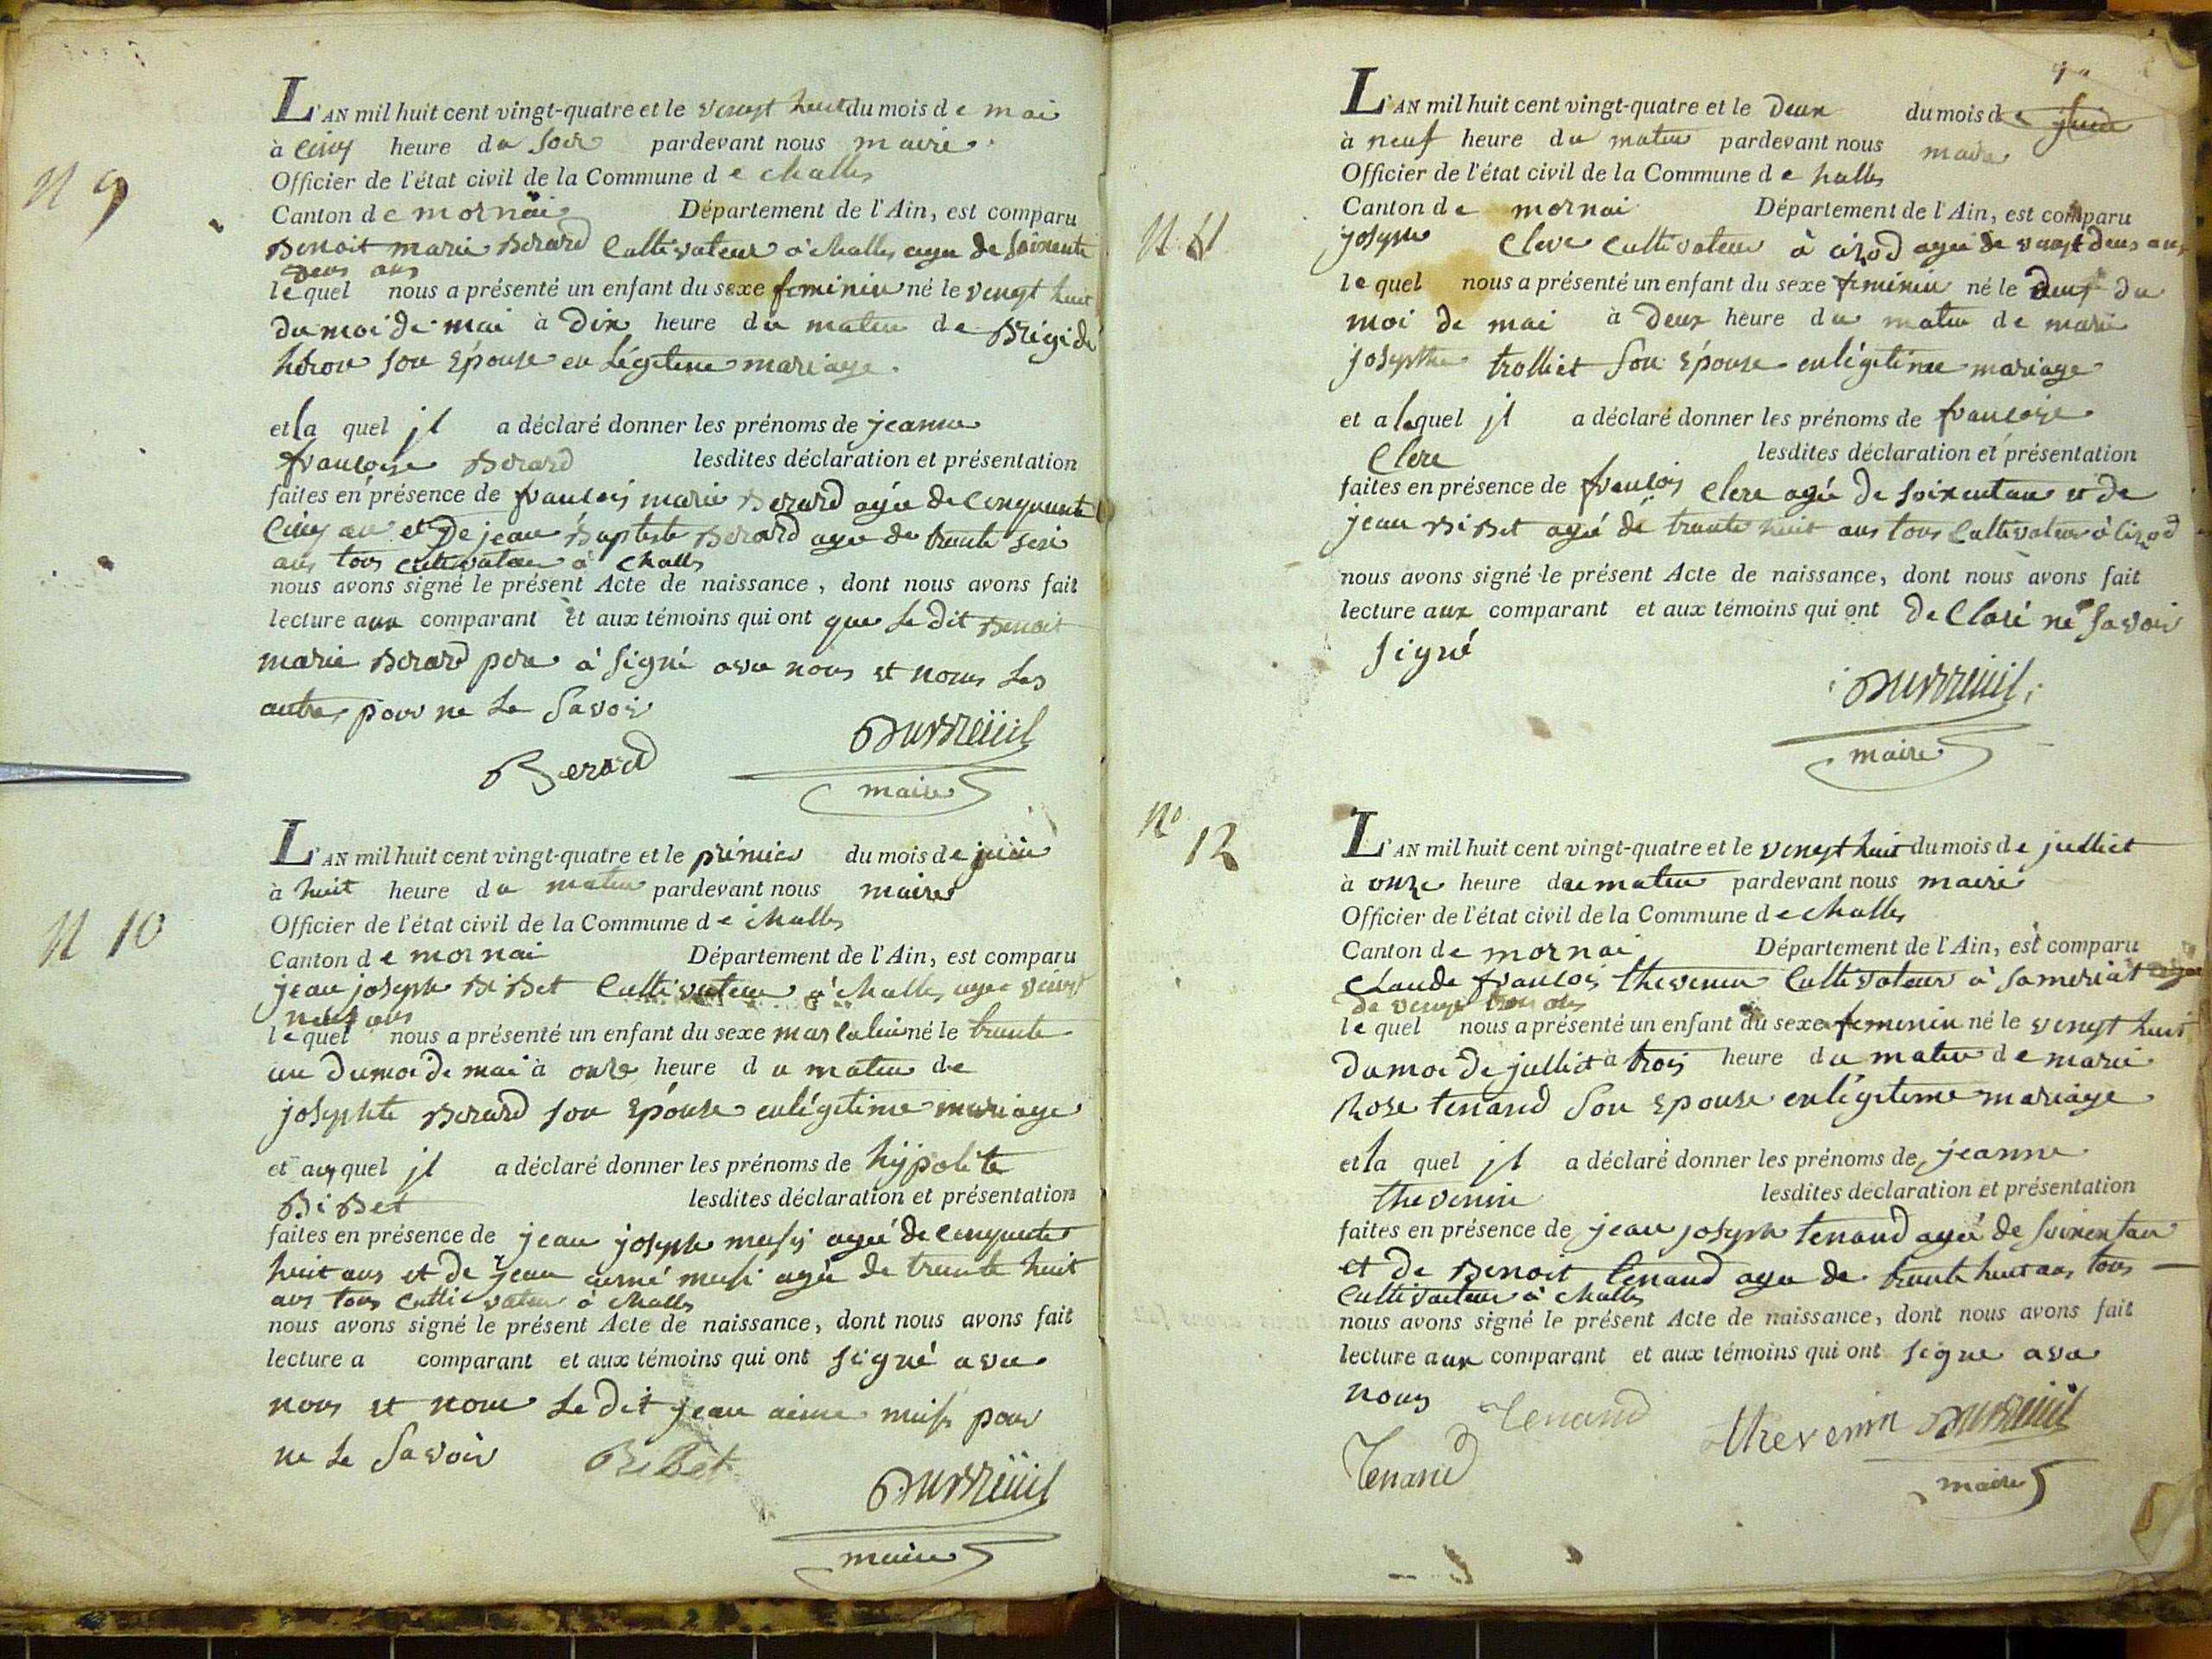 N 9
L'AN mil huit cent vingt-quatre et le vengt huit du mois de mai
à cinq heure du soir pardevant nous maire
Officier de l'état civil de la Commune de challes
Canton de mornai Département de l'Ain, est comparu
Benoit marie Berard Cultivateur à challes agee de soixente
deux ans
lequel nous a présenté un enfant du sexe feminin né le vengt huit
du moi de mai à dix heure du matin de Brigide
son Epouse en légitime mariage.
et la quel jl a déclaré donner les prénoms de jeanne
francoise Berard lesdites déclaration et présentation
faites en présence de francois marie Berard agée de cinquante
Cinq an et de jean Baptiste Berard agee de trente
ans tous cultivateur à challes
nous avons signé le présent Acte de naissance, dont nous avons fait
lecture aux comparant et aux témoins qui ont que le dit Benoit
marie Berard pere à signé avec nous et nonns les
autres pour ne le savoir
Berard Dubreüil
maire
N 10
L'AN mil huit cent vingt-quatre et le primier du mois de juin
à huit heure du matin pardevant nous maire
Officier de l'état civil de la Commune de challes
Canton de mornai Département de l'Ain, est comparu
jean joseph BiBet Cultivateur à challes agee vengt
neuf ans
lequel nous a présenté un enfant du sexe masculin né le trente
un du moi de mai à onze heure du matin de
josephte Berard son Epouse en légitime mariage
et auquel jl a déclaré donner les prénoms de hypolite
BiBet lesdites déclaration et présentation
faites en présence de jean joseph agée de cinquente
huit ans et de jean aimé agée de trente huit
ans tous cultivateur à challes
nous avons signé le présent Acte de naissance, dont nous avons fait
lecture a comparant et aux témoins qui ont signé avec
nous et nonn le dit jean aime pour
ne le savoir BiBet
Dubreüil
maire
N 11
L'AN mil huit cent vingt-quatre et le deux du mois de juin
à neuf heure du matin pardevant nous maire
Officier de l'état civil de la Commune de halles
Canton de mornai Département de l'Ain, est comparu
joseph Clere cultivateur à cizod agee de vengt deux ans
lequel nous a présenté un enfant du sexe feminin né le du
moi de mai à deux heure du matin de marie
josephte trolliet son Epouse en légitime mariage
et a lequel jl a déclaré donner les prénoms de francoise
Clere lesdites déclaration et présentation
faites en présence de francois Clere agée de soixentan et de
jean BiBet agée de trente huit ans tous cultivateur à cizod
nous avons signé le présent Acte de naissance, dont nous avons fait
lecture aux comparant et aux témoins qui ont de claré ne savoir
signé
Dubreuil
maire
No 12
L'AN mil huit cent vingt-quatre et le vengt huit du mois de julliet
à onze heure du matin pardevant nous maire
Officier de l'état civil de la Commune de challes
Canton de mornai Département de l'Ain, est comparu
Claude francois thevenin Cultivateur à Sameriat agee
de vengt trois ans
lequel nous a présenté un enfant du sexe femenin né le vengt huit
du moi de julliet à trois heure du matin de marie
Rose tenand son Epouse en légitime mariage
et la quel jl a déclaré donner les prénoms de jeanne
thevenin lesdites déclaration et présentation
faites en présence de jean joseph tenand agée de soixentan
et de Benoit tenand agee de trente huit ans tous
Cultivateur à challes
nous avons signé le présent Acte de naissance, dont nous avons fait
lecture aux comparant et aux témoins qui ont signe avec
nous Tenand
Tenand Thevenin Dubreuil
maire